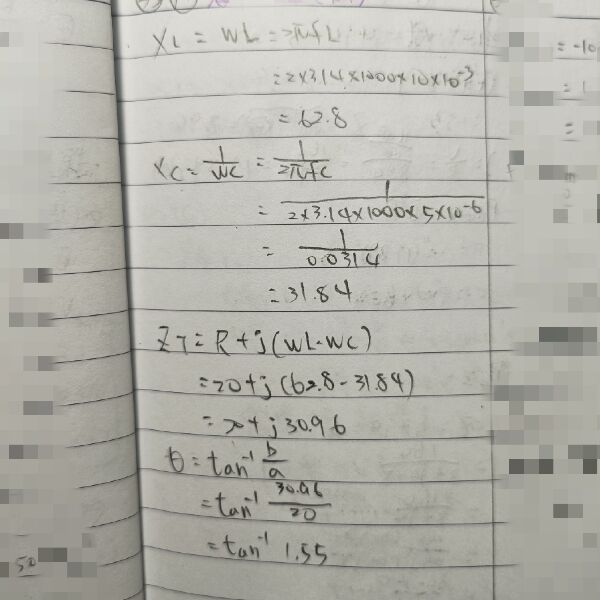 XL = WL = 2πfL
= 2×3.14×1000×10×10⁻³
= 62.8
XC = 1/WC = 1/2πfC
= 1/2×3.14×1000×5×10⁻⁶
= 1/0.0314
= 31.84
ZT = R+j(WL-WC)
= 20+j(62.8-31.84)
= 20+j30.96
θ = tan⁻¹ b/a
= tan⁻¹ 30.96/20
= tan⁻¹ 1.55
= -10
50